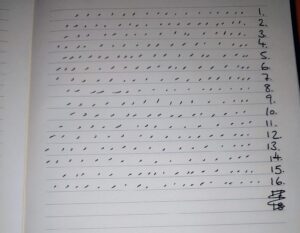 1.
2.
3.
4.
5.
6.
7.
8.
9.
10.
11.
12.
13.
14.
15.
16.